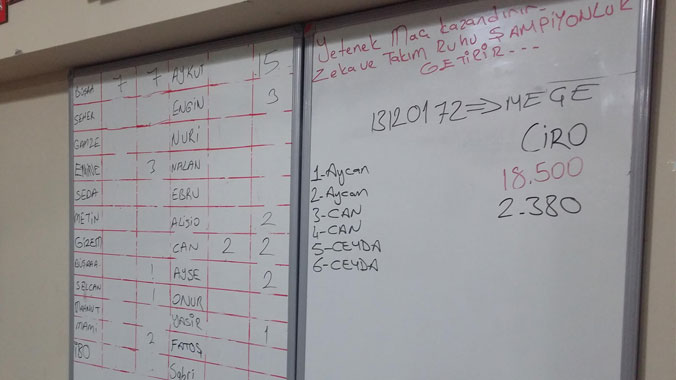 BUSRA 7 7 AYKUT 5
SEHER ENGIN 3
GAMZE NURi
EMINE 3 NALAN
SEDA EBRU
METIN ALİŞİO 2
GİZEM CAN 2 2
AYSE 2
SELCAN ! ONUR
MAHMUT YASIR
MAMİ 2 FATOŞ 1
İBO Sabri
Yetenek Maçı kazandırır..
Zeka ve Takım Ruhu ŞAMPİYONLUK
GETİRİR---
13120172⇒MEGE
CİRO
18.500
2.380
1-Aycan
2-Aycan
3-CAN
4-CAN
5-CEYDA
6-CEYDA